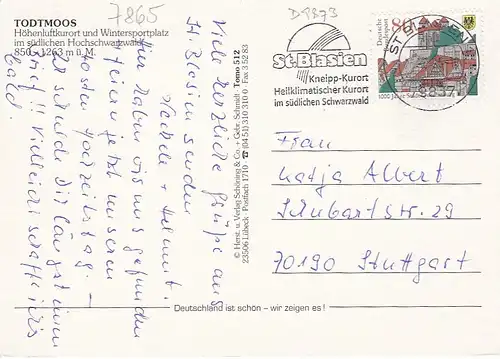 TODTMOOS
Höhenluftkurort und Wintersportplatz
im südlichen Hochschwarzwald
850 - 1263 m ü. M.
7865
D-9873
Viele herzliche Grüße aus
St. Blasien senden
+ Helmut.
Wir haben uns
feiern jetzt unseren
Hochzeitstag. —
Ich schreibe Dir längst einen
Brief!! Vielleicht
bald.
© Herst. u. Verlag Schöning & Co. + Gebr. Schmidt
23506 Lübeck · Postfach 1710 · ☎ (04 51) 310 310 0 · Fax 3 52 83
Tomo 512
St. Blasien
Kneipp-Kurort
Heilklimatischer Kurort
im südlichen Schwarzwald
Deutsche Bundespost
80
1000 Jahre
ST BLASIEN
Frau
Katja Albert
Schubartstr. 29
70190 Stuttgart
Deutschland ist schön – wir zeigen es!